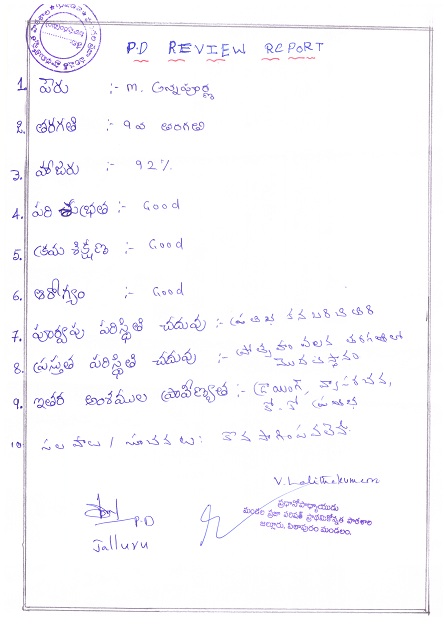 P.D REVIEW REPORT
1. పేరు :- m. అన్నపూర్ణ
2. తరగతి :- 9 వ తరగతి
3. హాజరు :- 92%
4. పరి శుభ్రత :- Good
5. క్రమ శిక్షణ :- Good
6. ఆరోగ్యం :- Good
7. పూర్వపు పరిస్థితి చదువు :- ప్రతిభ కనబరిచినది
8. ప్రస్తుత పరిస్థితి చదువు :- ప్రోత్సాహం వలన తరగతిలో
మొదటిస్థానం
9. ఇతర అంశముల ప్రావీణ్యాత :- డ్రాయింగ్, వ్యాసరచన,
ఖో-ఖో ప్రతిభ
10. సలహాలు / సూచనలు: కొనసాగింపవలెను
V. Lalithakumari
P.D
Jalluru
ప్రధానోపాధ్యాయుడు
మండల ప్రజా పరిషత్ ప్రాథమికోన్నత పాఠశాల
జల్లూరు, పిఠాపురం మండలం.